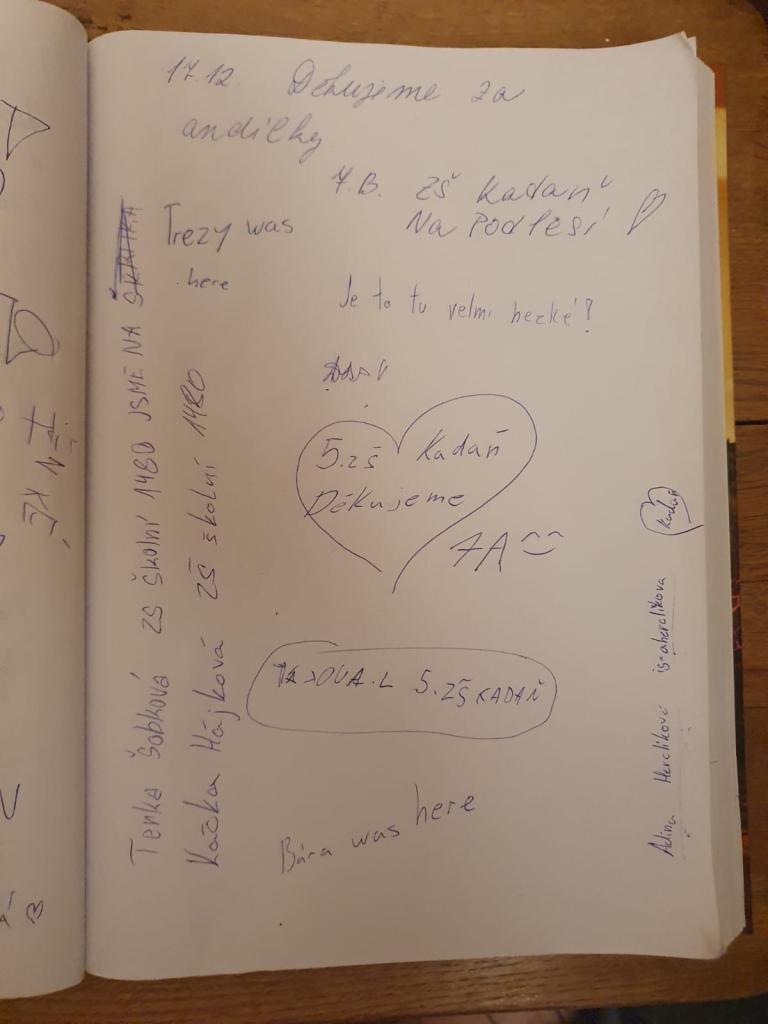 17.12. Děkujeme za
andílky
7.B. ZŠ Kadaň
Na Podlesí
Trezy was
here
Je to tu velmi hezké!
5.ZŠ Kadaň
Děkujeme
7A
5. ZŠ KADAŇ
Bára was here
Terka Šobková ZŠ školní 1480 JSME NA
Kačka Hájková ZŠ školní 1480
Adina Herclíková is-aherclikova
Kadaň